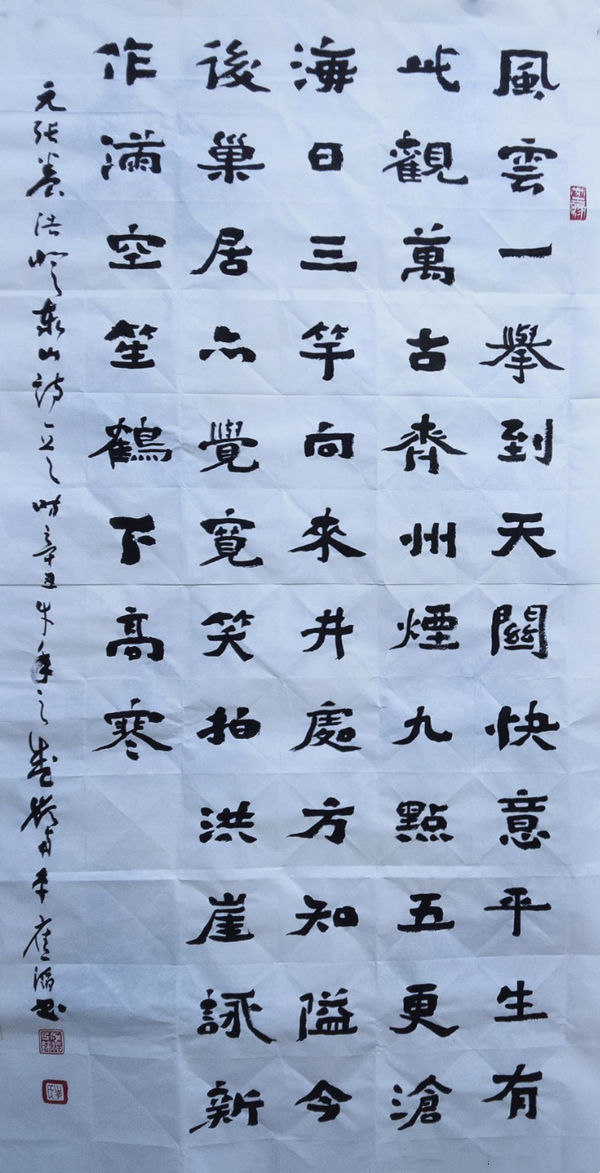 風雲一舉到天關快意平生有
此觀萬古齊州煙九點五更滄
海日三竿向來井處方知隘今
後巢居亦覺寬笑拍洪崖詠新
作滿空笙鶴下高寒
元张養浩登泰山詩一首時辛丑牛年之